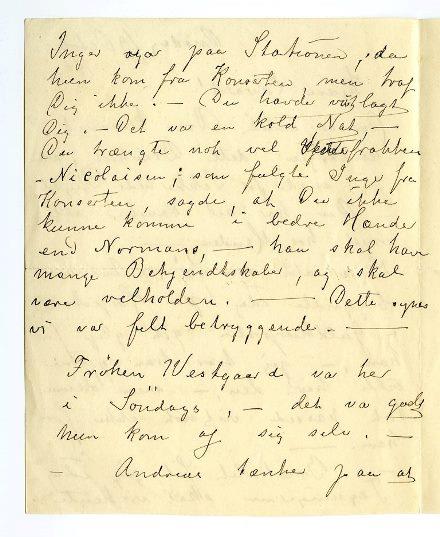 Inger var paa Stationen, da
hun kom fra Konserten men traf
Dig ikke. — Du havde vist lagt
Dig. — Det var en kold Nat, —
Du trængte nok vel frakken
— Nicolaisen; som fulgte Inge fra
Konserten, sagde, at Du ikke
kunne komme i bedre Hænder
end Normans, — han skal have
mange Bekjendtskaber, og skal
være velholden. — Dette synes
vi var felt betryggende. —
Frøken Westgaard va her
i Søndags, — det va godt
hun kom af sig selv. —
— Andreas tænker paa at